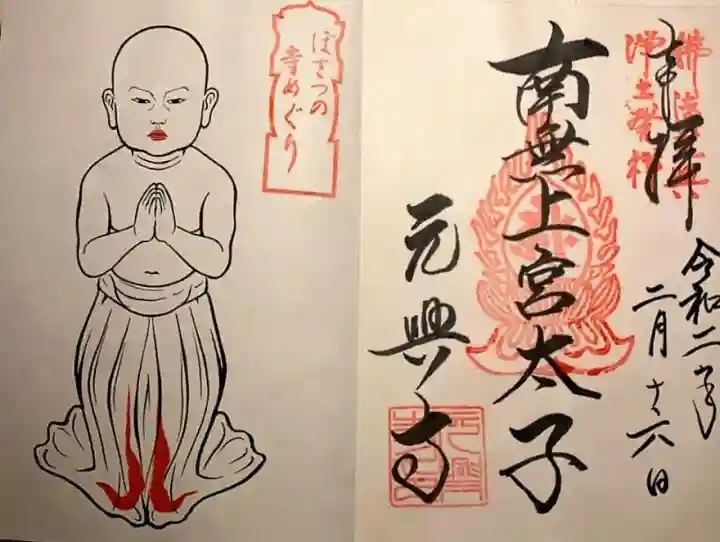 奉拝
令和二年
二月十六日
南無上宮太子
元興寺
ぼさつの
寺めぐり
元興